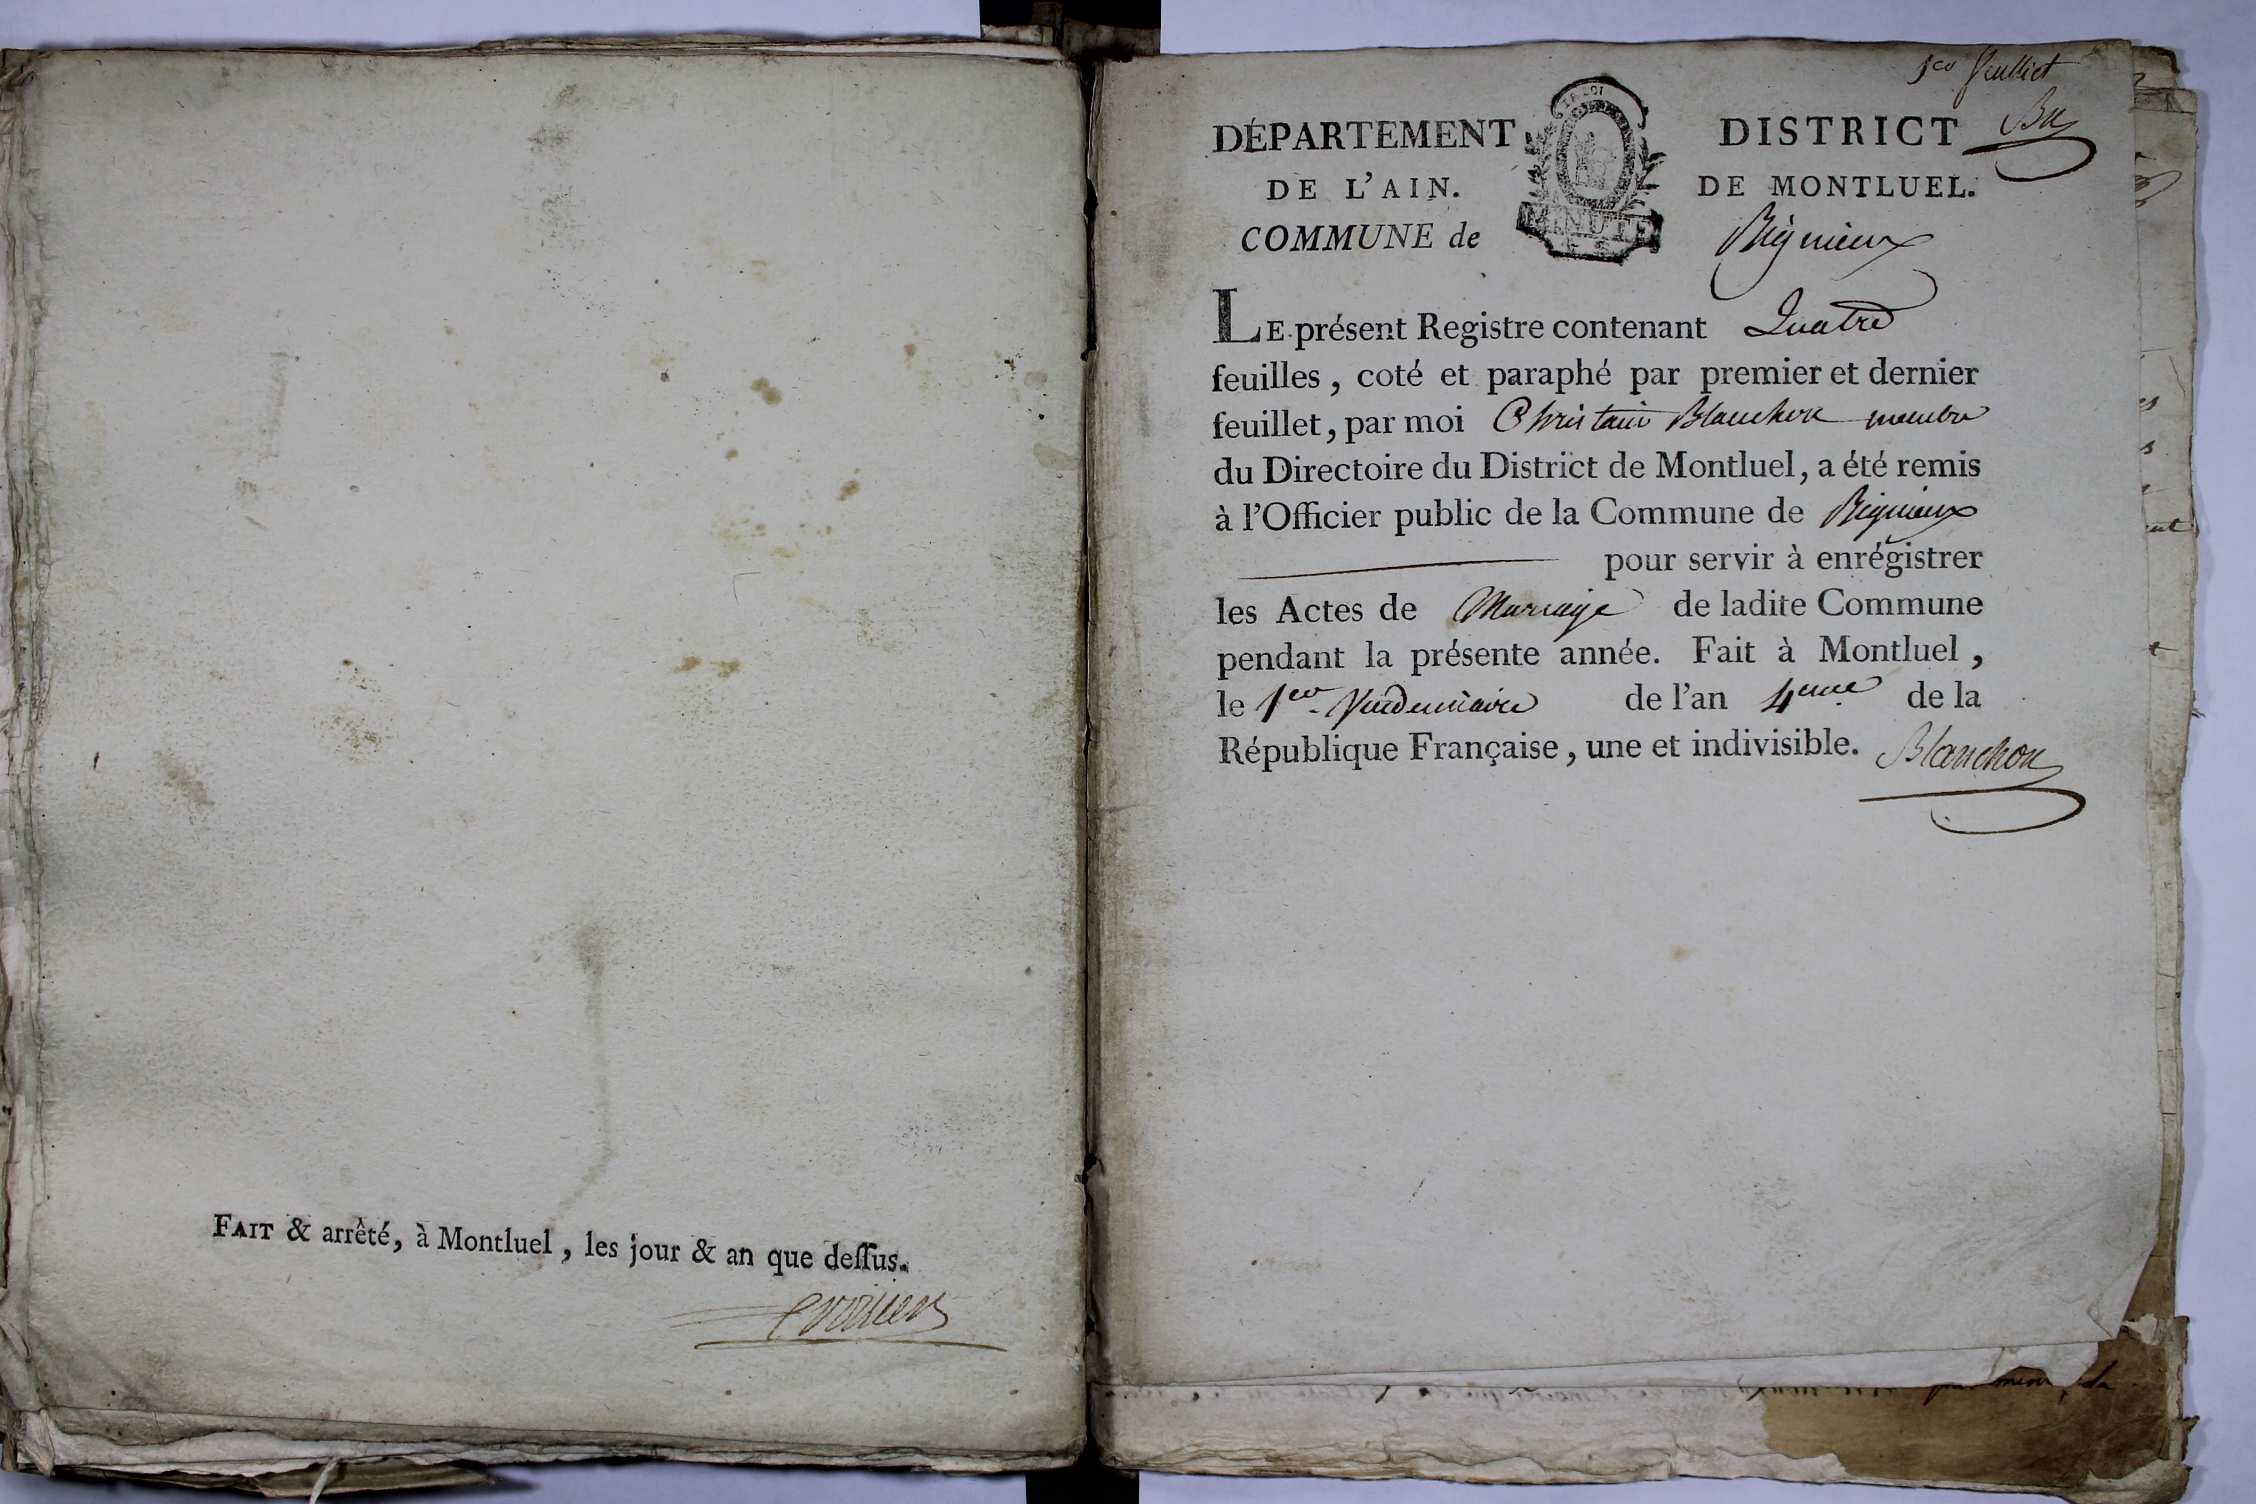 FAIT & arrêté, à Montluel, les jour & an que dessus.
1er feuillet
DÉPARTEMENT
DE L'AIN.
COMMUNE de
LA LOI
MINUTE
DISTRICT
DE MONTLUEL.
Rignieux
LE présent Registre contenant Quatre
feuilles, coté et paraphé par premier et dernier
feuillet, par moi Blanchon membre
du Directoire du District de Montluel, a été remis
à l'Officier public de la Commune de Rignieux
pour servir à enrégistrer
les Actes de Marriage de ladite Commune
pendant la présente année. Fait à Montluel,
le 1er Vendemiaire de l'an 4eme de la
République Française, une et indivisible. Blanchon